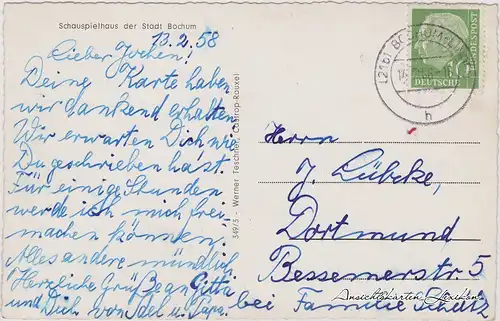 Schauspielhaus der Stadt Bochum
13.2.58
Lieber Jochen!
Deine Karte haben
wir dankend erhalten
Wir erwarten Dich, wie
Du geschrieben hast.
Für einige Stunden
werde ich mich frei
machen können.
Alles andere mündlich.
Herzliche Grüße an Gitta
und Dich von Adel u. Papa.
349/5 - Werner Teschner, Castrop-Rauxel
(21b) BOCHUM
h
DEUTSCHE BUNDESPOST
10
Herrn
J. Lübcke,
Dortmund
Bessemerstr 5
bei Familie Schulz
Ansichtskarten-Lexikon